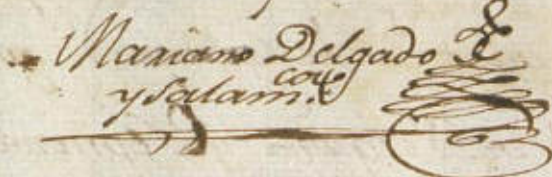 Mariano Delgado
y Salam.ca